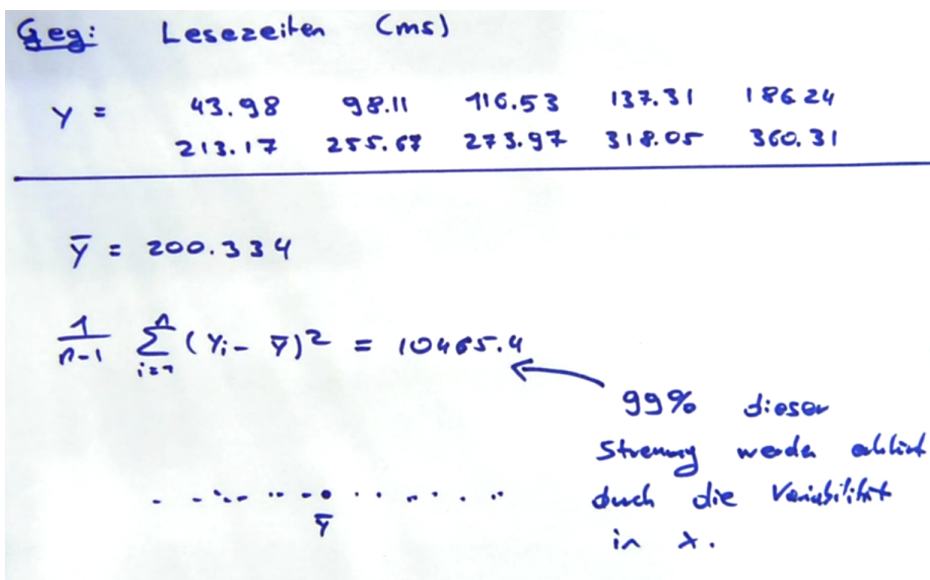 Geg: Lesezeiten (ms)
y = 43.98 98.11 116.53 137.31 186.24
213.17 255.67 273.97 318.05 360.31
ȳ = 200.334
1/(n-1) Σ_{i=1}^{n} (y_i - ȳ)² = 10465.4
99% dieser
Streuung werden erklärt
durch die Variabilität
in x.
ȳ